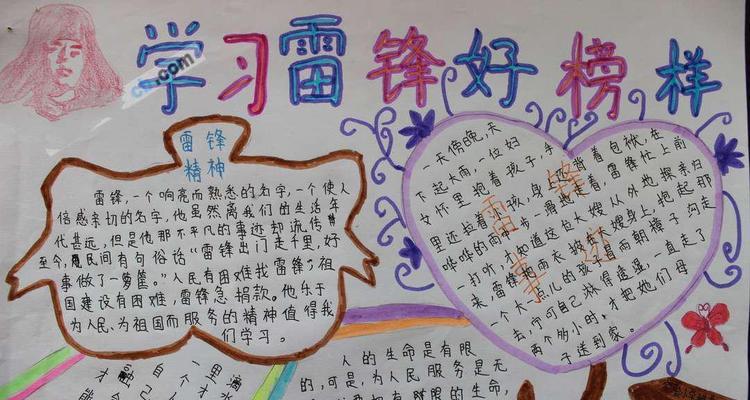 学习雷锋好榜样
雷锋
精神
雷锋,一个响亮而熟悉的名字,一个使人
倍感亲切的名字,他虽然离我们的生活年
代甚远,但是他那不平凡的事迹却流传
至今,民间有句俗话“雷锋出门走千里,好
事做了一箩筐。”人民有困难找雷锋,祖
国建设有困难,雷锋急捐款。他乐于
为人民、为祖国而服务的精神值得我
们学习。
一天傍晚,天
下起大雨,一位妇
女怀里抱着孩子,手
里还拉着小孩,身上背着包袱,在
哗哗的雨中一步一滑地走着,雷锋忙上前
一打听,才知道这位大嫂从外地探亲归
来,雷锋把雨衣披在大嫂身上,抱起那
一个大一点儿的孩子冒雨朝樟子沟走
去,宁可自己淋得透湿,一直走了
两个多小时,才把她们母
子送到家。
雷锋
事
人的生命是有限
的,可是,为人民服务是无
限的生命,
自己